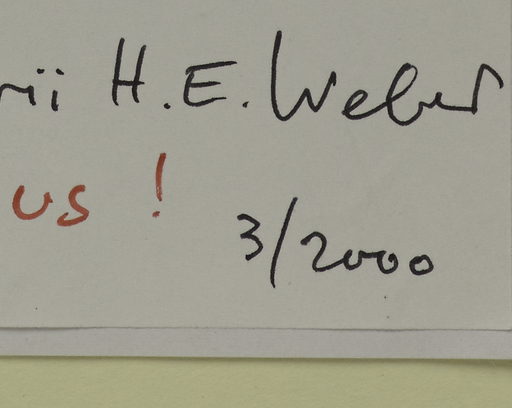 H.E. Weber
us !
3/2000